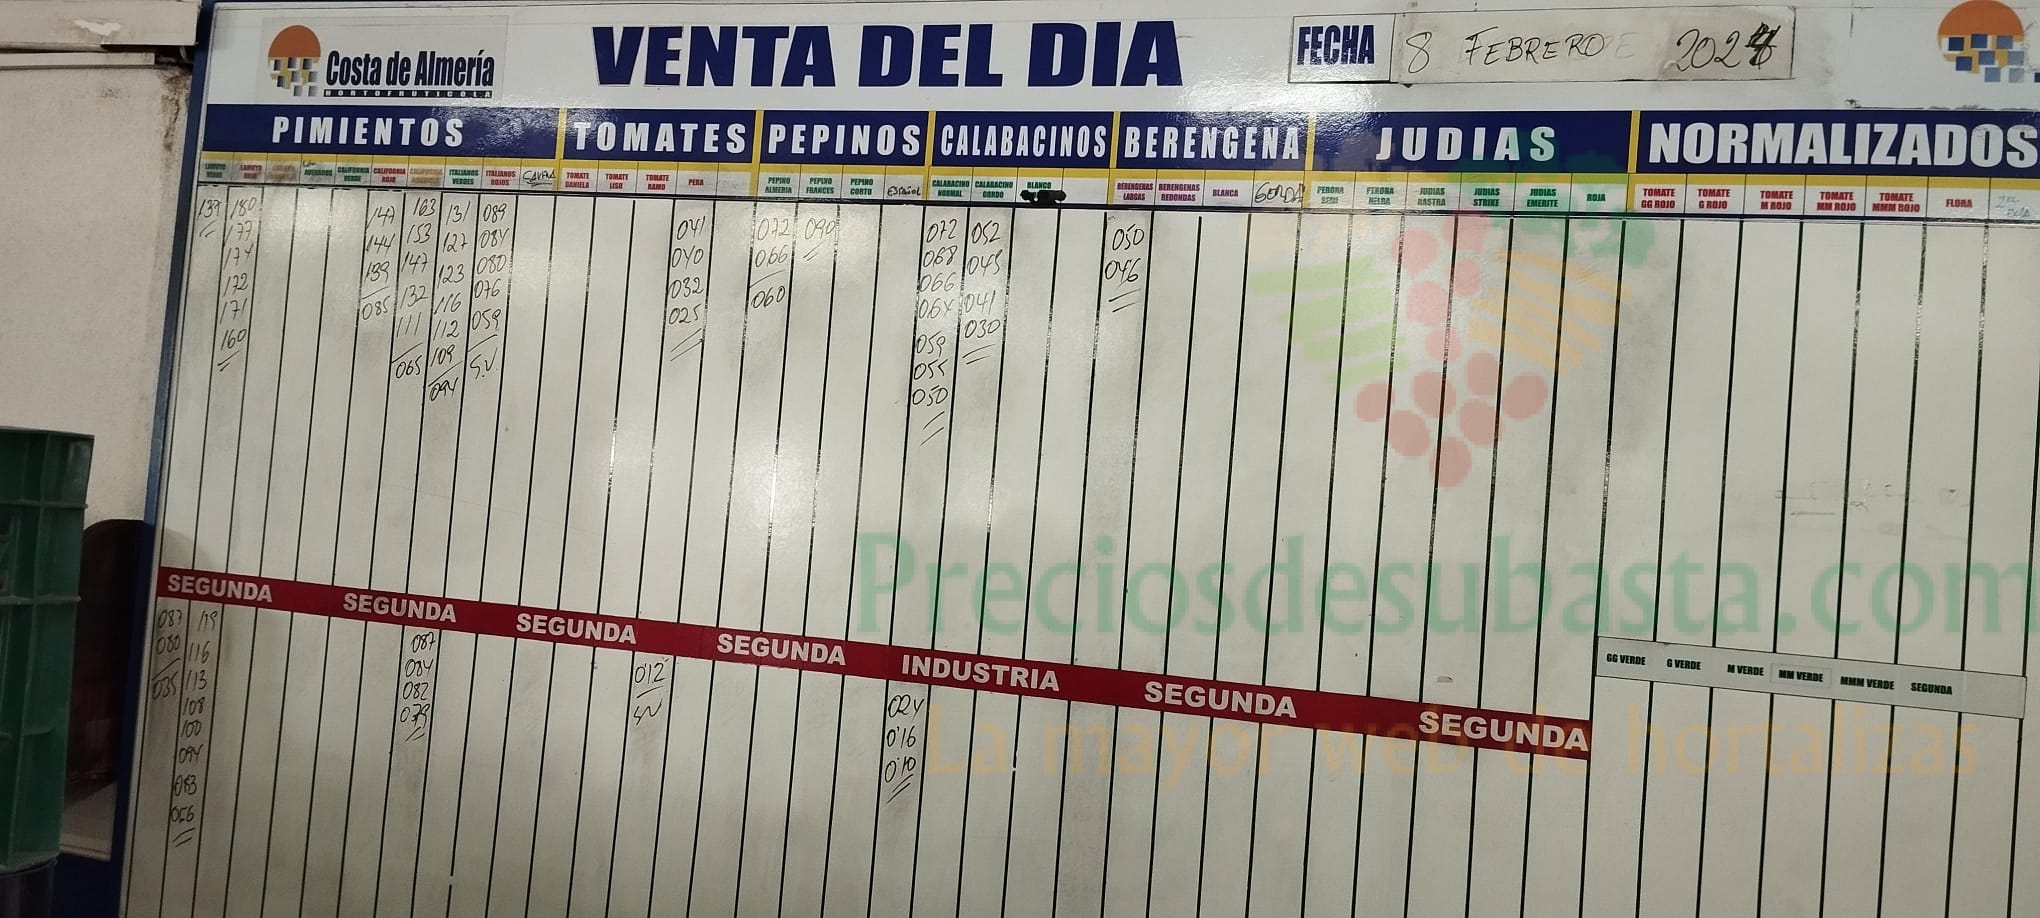 Costa de Almería
HORTOFRUTICOLA
VENTA DEL DIA
FECHA
8 FEBRERO 2024
PIMIENTOS TOMATES PEPINOS CALABACINOS BERENGENA JUDIAS NORMALIZADOS
LAMUYO VERDE
LAMUYO ROJO
CALIFORNIA VERDE
CALIFORNIA ROJO
ITALIANOS VERDES
ITALIANOS ROJOS
TOMATE DANIELA
TOMATE LISO
TOMATE RAMO
PERA
PEPINO ALMERIA
PEPINO FRANCES
PEPINO CORTO
ESPAÑOL
CALABACINO NORMAL
CALABACINO GORDO
BLANCO
BERENGENAS LARGAS
BERENGENAS REDONDAS
BLANCA
GORDA
PERONA SEMI
PERONA HELDA
JUDIAS RASTRA
JUDIAS STRIKE
JUDIAS EMERITE
ROJA
TOMATE GG ROJO
TOMATE G ROJO
TOMATE M ROJO
TOMATE MM ROJO
TOMATE MMM ROJO
FLORA
139
180
177
174
172
171
160
147
144
139
085
163
153
147
132
111
065
131
127
123
116
112
109
094
089
084
080
076
059
S.V.
041
040
032
025
072
066
060
090
072
068
066
064
059
055
050
052
045
041
030
050
046
SEGUNDA SEGUNDA SEGUNDA SEGUNDA INDUSTRIA SEGUNDA SEGUNDA
087
080
035
119
116
113
108
100
094
083
056
087
084
082
079
0'12
SV
024
0'16
0'10
GG VERDE G VERDE M VERDE MM VERDE MMM VERDE SEGUNDA
Preciosdesubasta.com
La mayor web de hortalizas